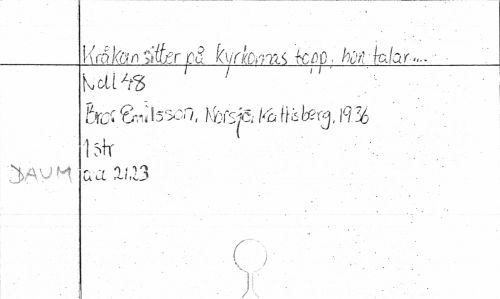 Kråkan sitter på kyrkornas topp, hon talar....
Ndl 48
Bror Emilsson, Norsjö, Kattisberg, 1936
1 str
DAUM acc 2123